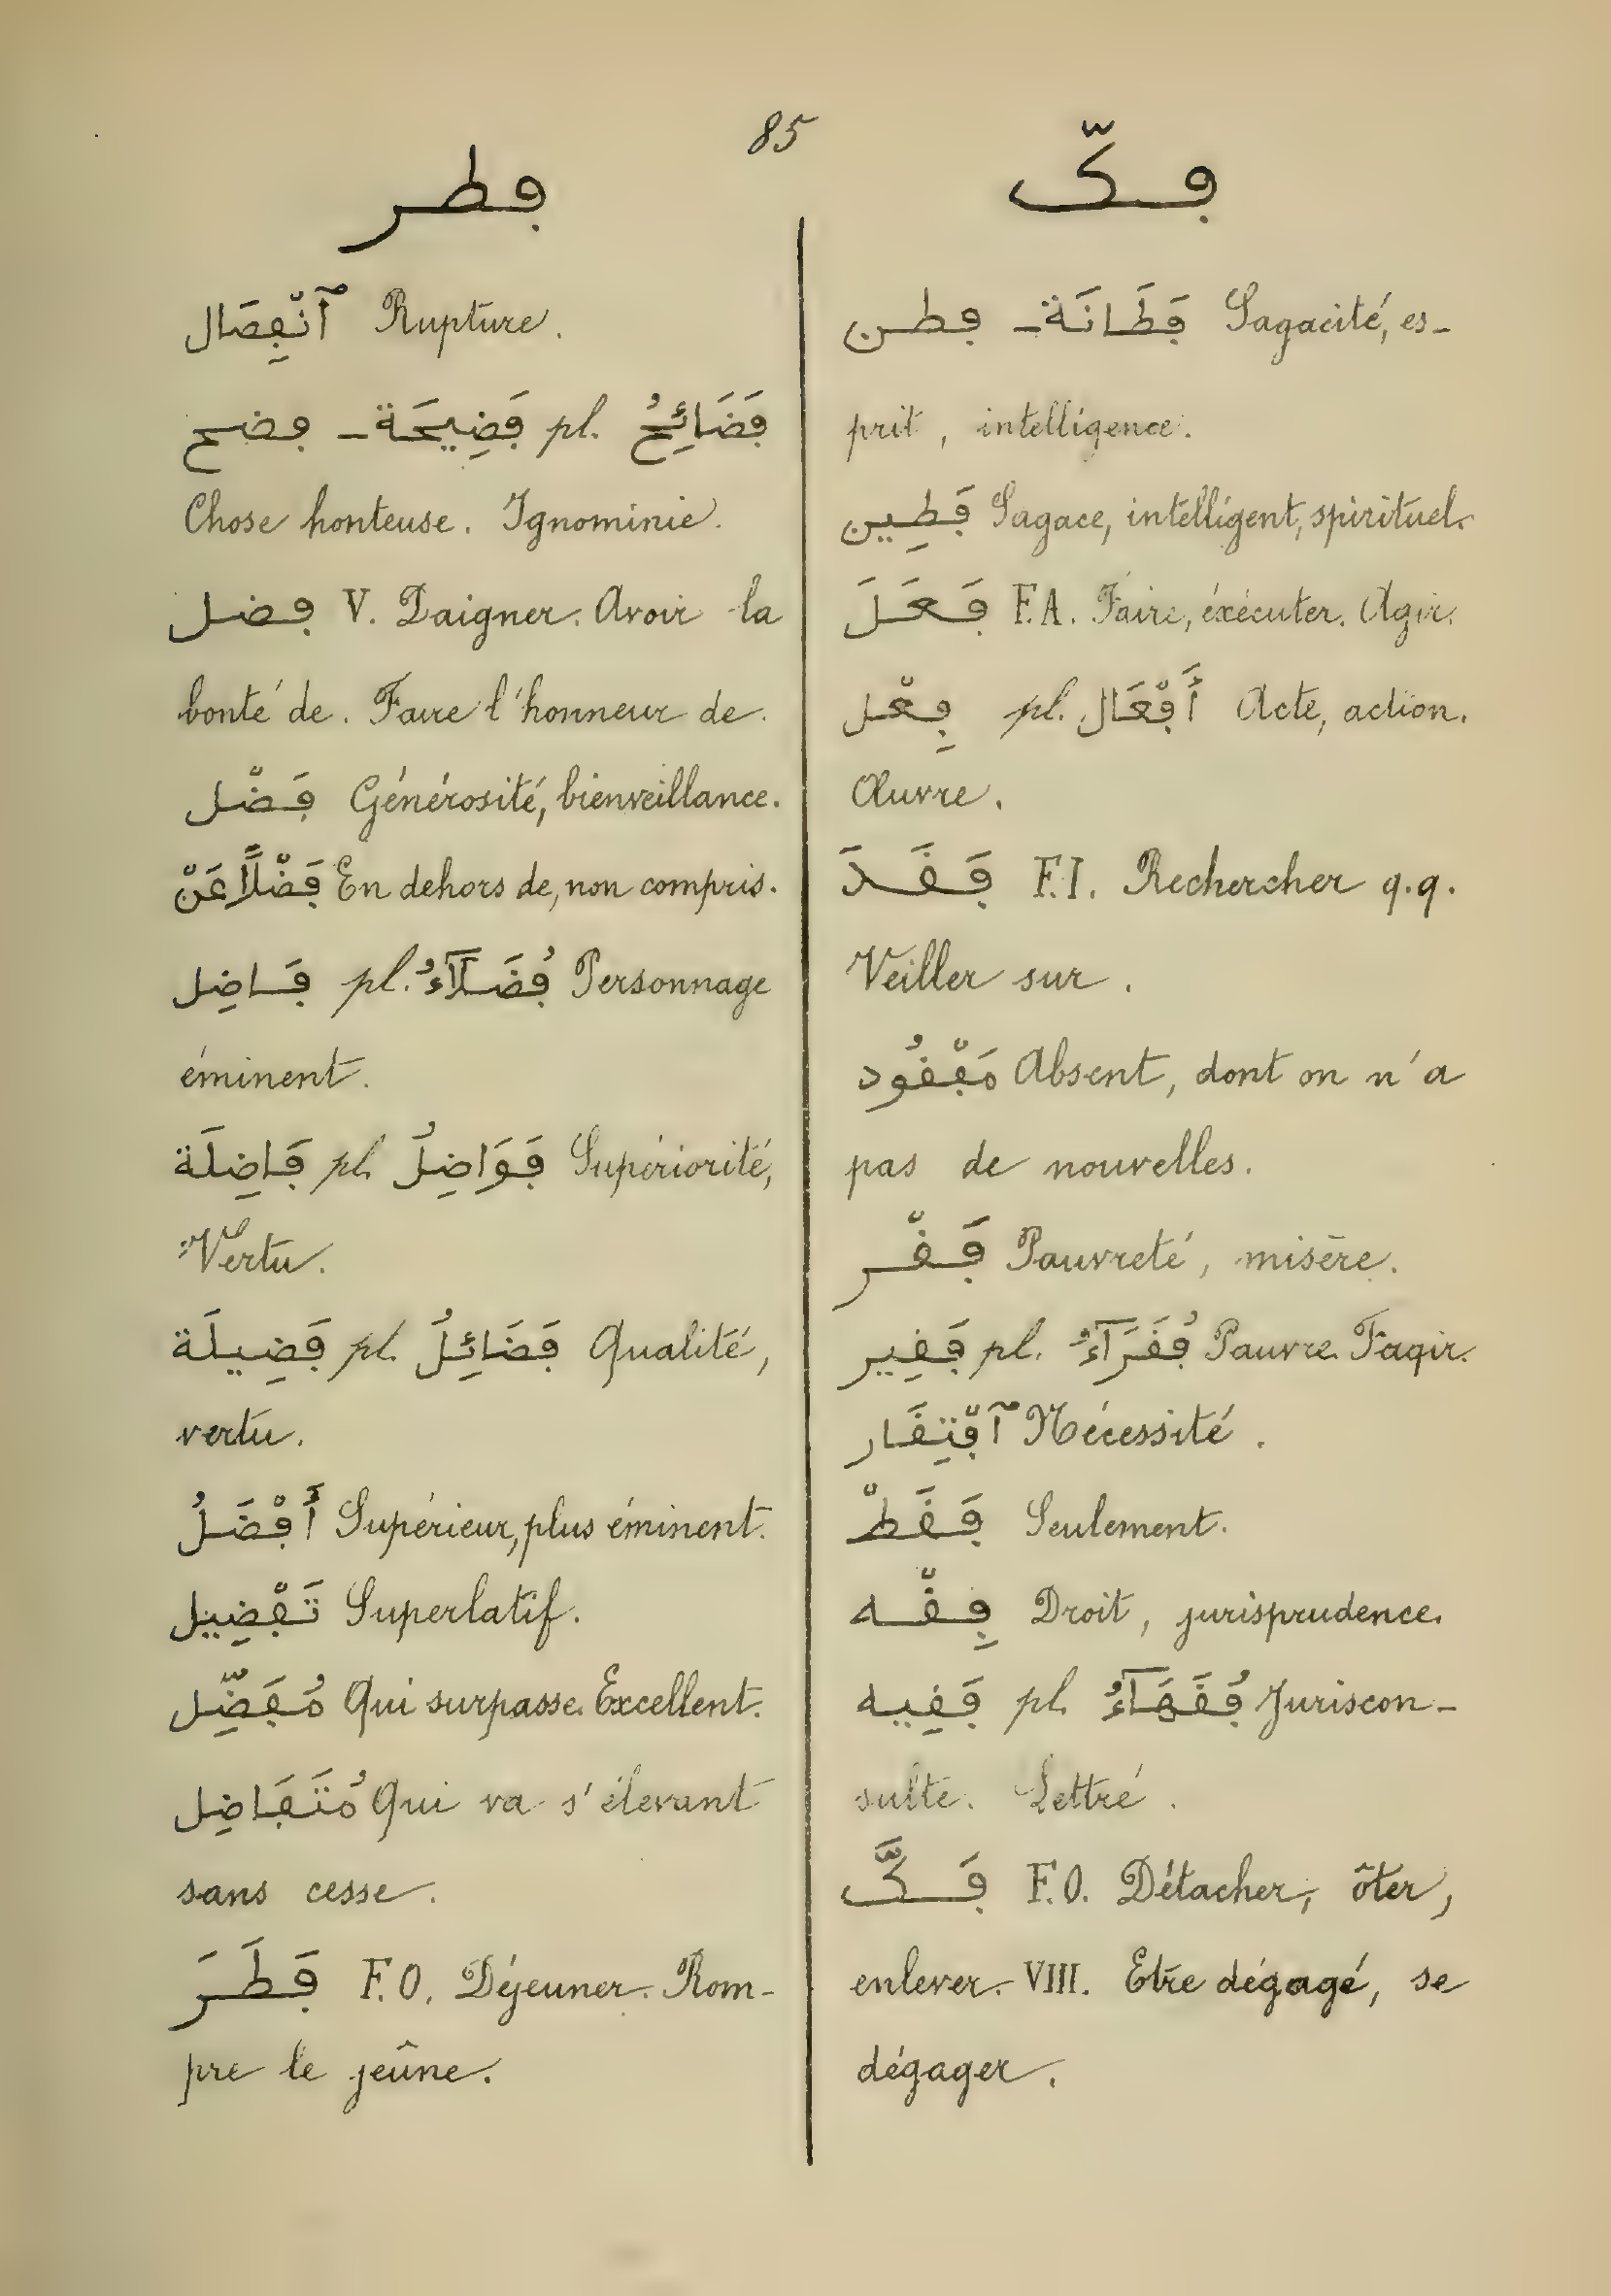 85
فطر
ٱنْفِصَال Rupture.
فضح ـ فَضِيحَة pl. فَضَائِحُ
Chose honteuse. Ignominie.
فضل V. Daigner. Avoir la
bonté de. Faire l'honneur de.
فَضْل Générosité, bienveillance.
فَضْلًا عَنْ En dehors de, non compris.
فَاضِل pl. فُضَلَآءُ Personnage
éminent.
فَاضِلَة pl. فَوَاضِلُ Supériorité,
Vertu.
فَضِيلَة pl. فَضَائِلُ Qualité,
vertu.
أَفْضَلُ Supérieur, plus éminent.
تَفْضِيل Superlatif.
مُفَضِّل Qui surpasse. Excellent.
مُتَفَاضِل Qui va s'élevant
sans cesse.
فَطَرَ F.O. Déjeuner. Rom-
pre le jeûne.
فكّ
فطن ـ فَطَانَة Sagacité, es-
prit, intelligence.
فَطِين Sagace, intelligent, spirituel.
فَعَلَ F.A. Faire, éxécuter. Agir.
فِعْل pl. أَفْعَال Acte, action.
Œuvre.
فَقَدَ F.I. Rechercher q.q.
Veiller sur.
مَفْقُود Absent, dont on n'a
pas de nouvelles.
فَقْر Pauvreté, misère.
فَقِير pl. فُقَرَآءُ Pauvre. Faqir.
ٱفْتِقَار Nécessité.
فَقَطْ Seulement.
فِقْه Droit, jurisprudence.
فَقِيه pl. فُقَهَآءُ Juriscon-
sulte. Lettré.
فَكَّ F.O. Détacher, ôter,
enlever. VIII. Etre dégagé, se
dégager.